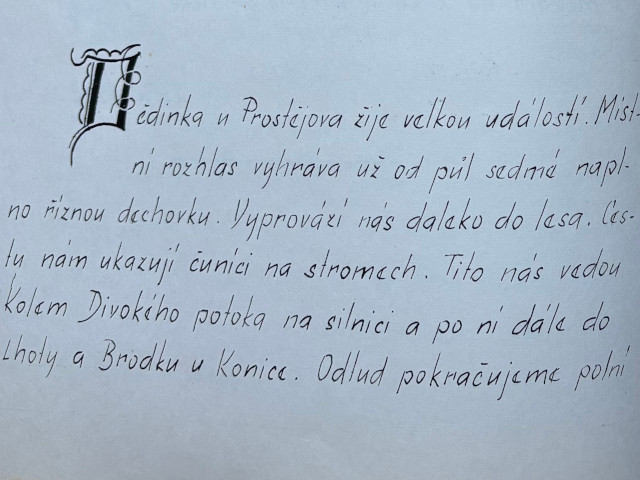 Dědinka u Prostějova žije velkou událostí. Míst-
ní rozhlas vyhráva už od půl sedmé napl-
no říznou dechovku. Vyprovází nás daleko do lesa. Ces-
tu nám ukazují čuníci na stromech. Tito nás vedou
kolem Divokého potoka na silnici a po ní dále do
Lhoty a Brodku u Konice. Odtud pokračujeme polní